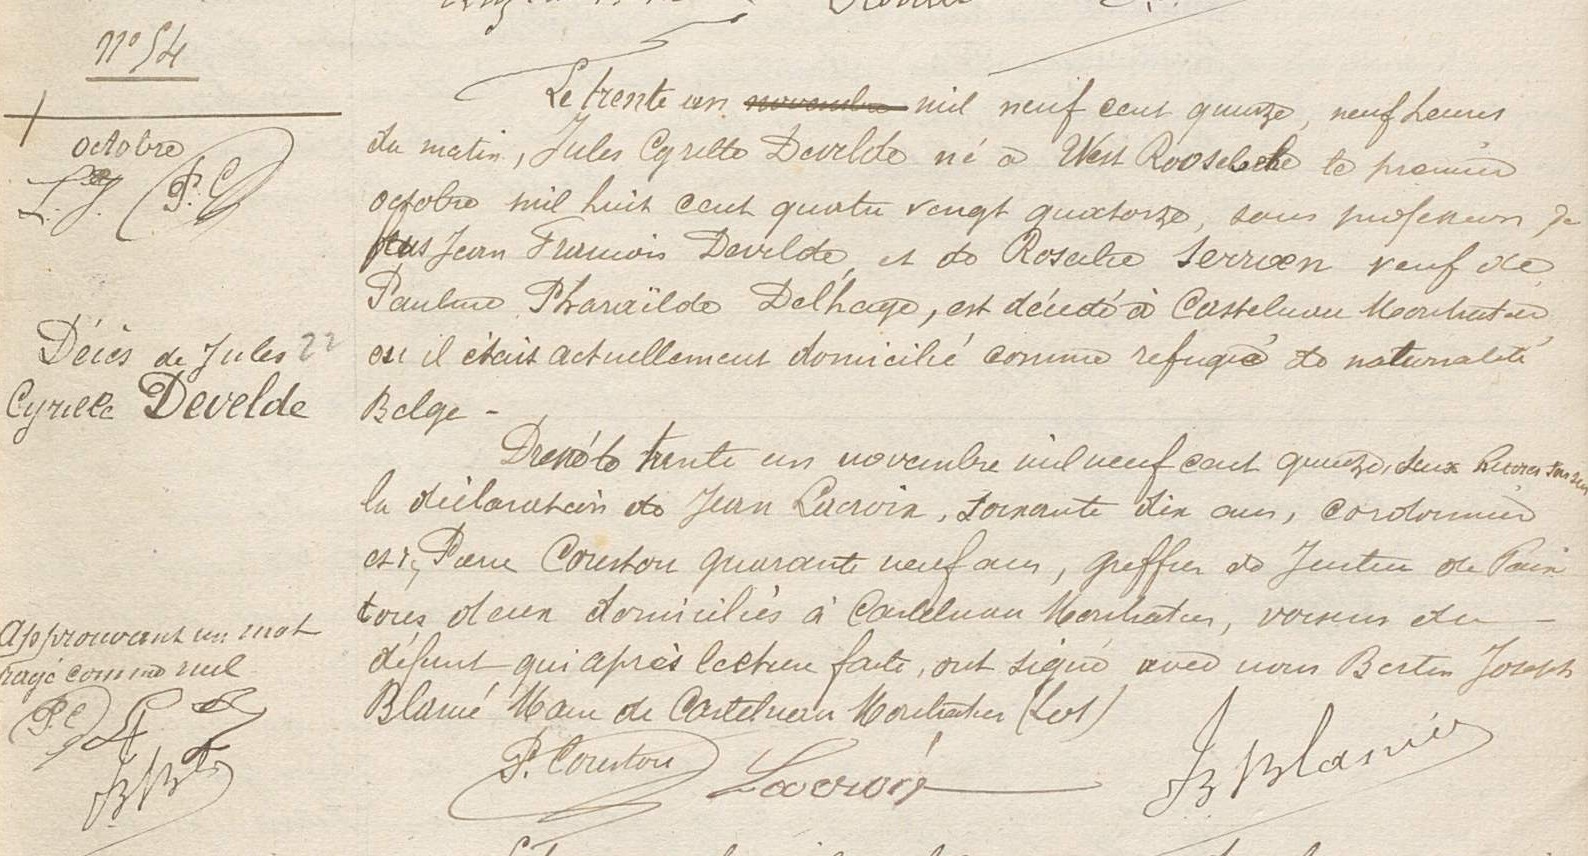 n° 54
octobre
L. J. P. C
Décès de Jules 22
Cyrille Develde
Approuvant un mot
rayé comme nul
P. C
Le trente un novembre mil neuf cent quinze, neuf heures
du matin, Jules Cyrille Develde né à West Roosebeke le premier
octobre mil huit cent quatre vengt quatorze, sans profession, de
feus Jean Francois Develde, et de Rosalie Serroen veuf de
Pauline Pharaïlde Delhaye, est décédé à Castelnau Montratier
où il était actuellement domicilié comme refugié de naturalité
Belge -
Dressé le trente un novembre mil neuf cent quinze, deux heures sur
la déclaration de Jean Lacroix, soixante dix ans, cordonnier
et de Pierre Couston quarante neuf ans, greffier de Justice de Paix
tous deux domiciliés à Castelnau Montratier, voisins du -
défunt qui après lecture faite, ont signé avec nous Bertin Joseph
Blanié Maire de Castelnau Montratier (Lot)
P. Couston Lacroix JB Blanié